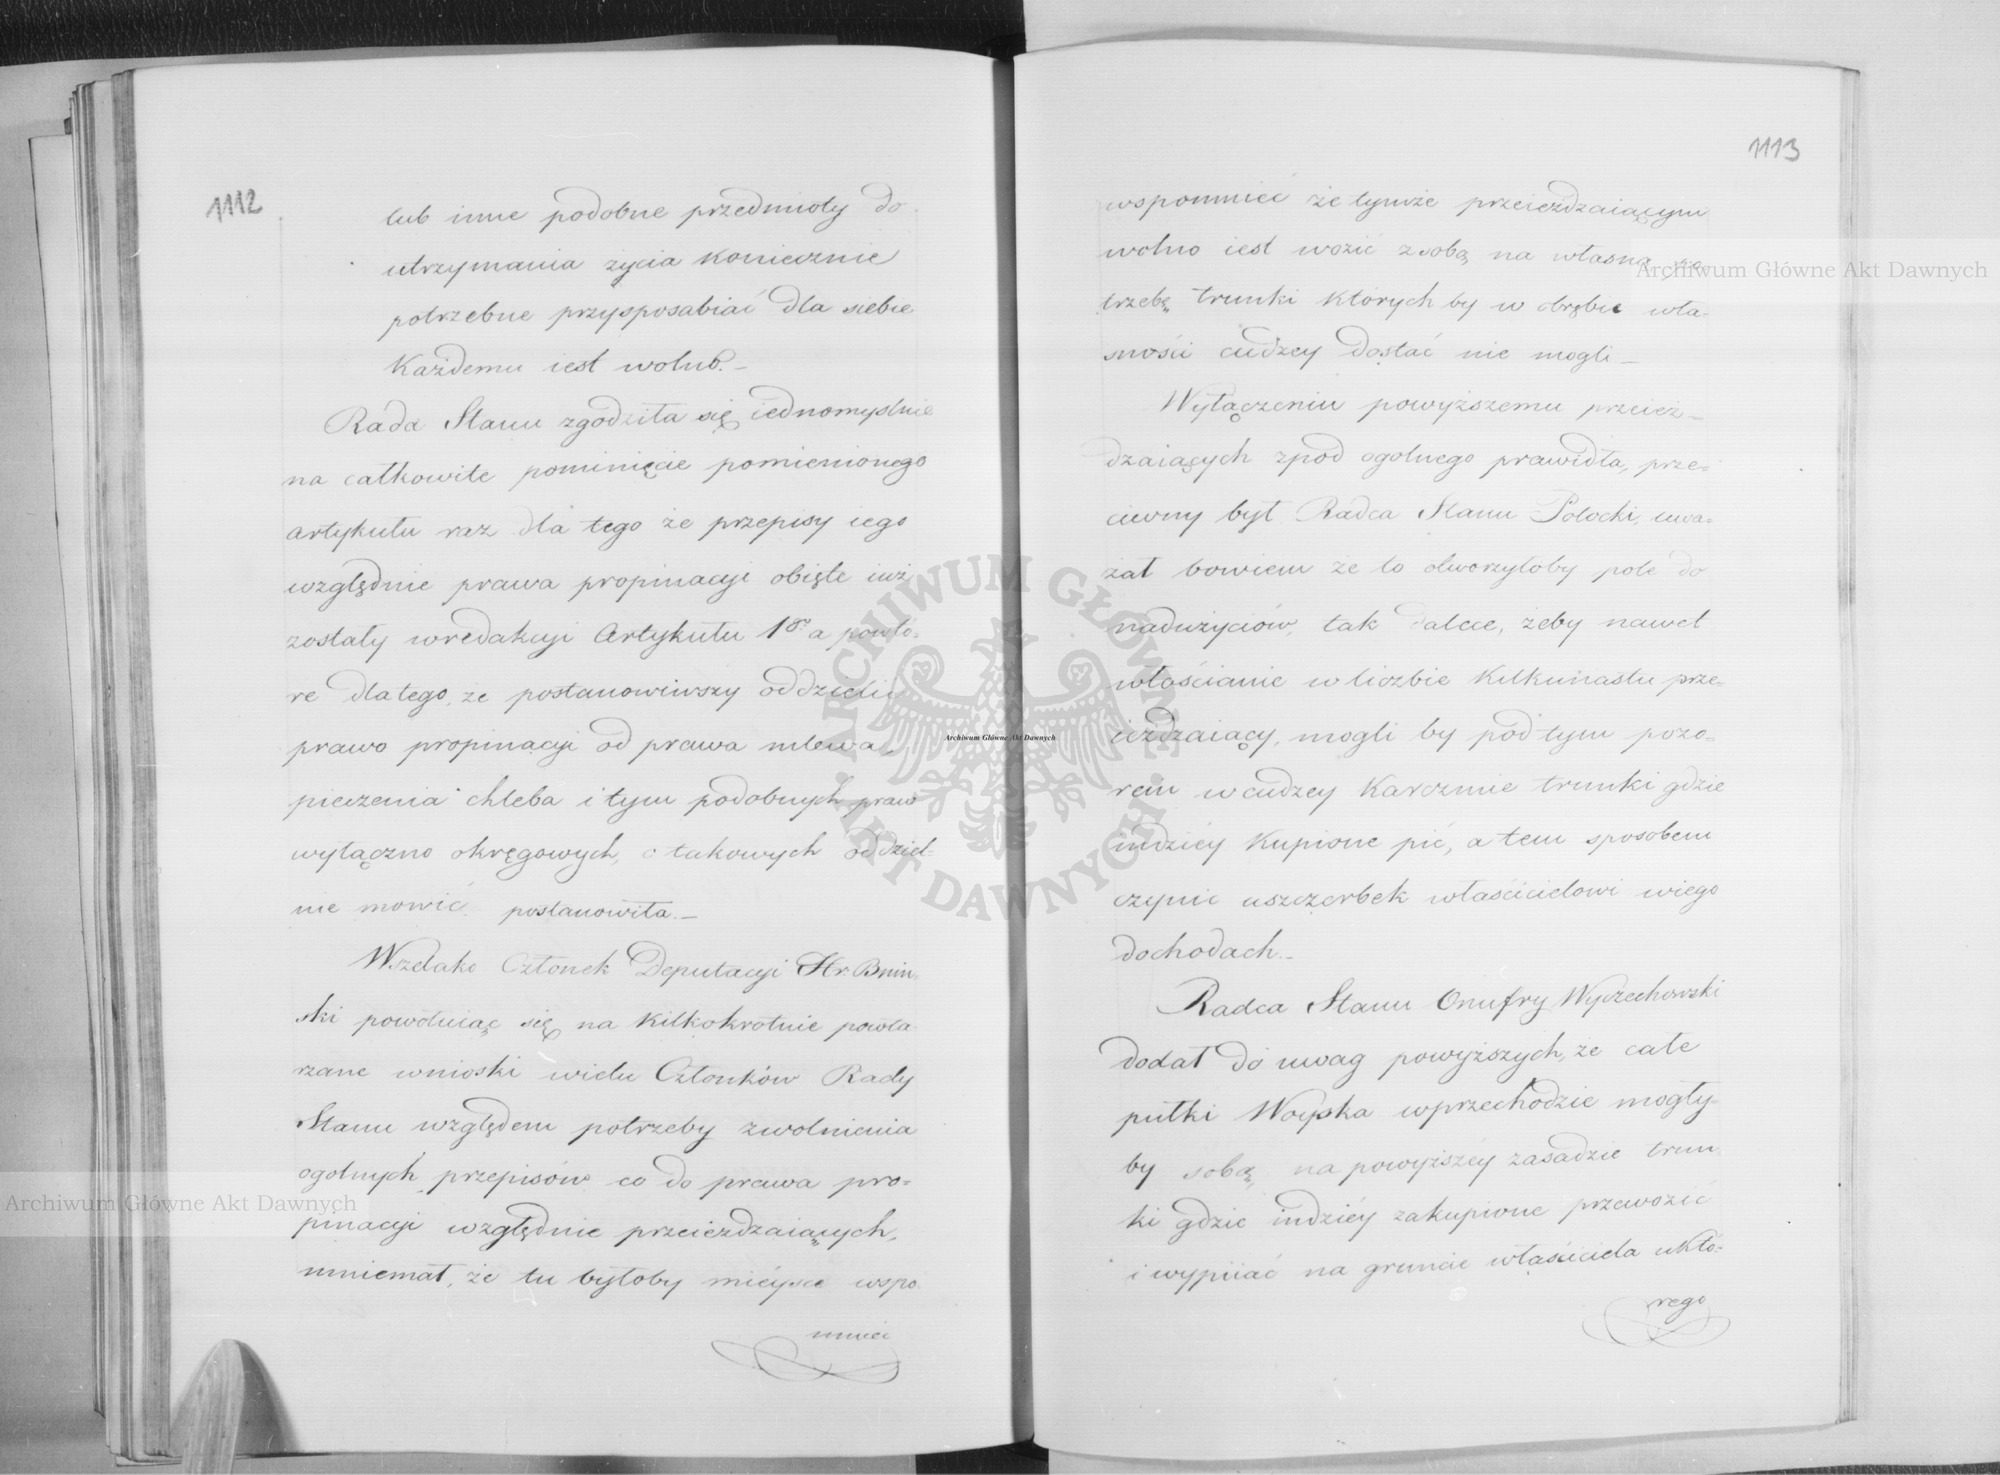 1112
lub inne podobne przedmioty do
utrzymania życia koniecznie
potrzebne przysposabiać dla siebie
Każdemu iest wolno.–
Rada Stanu zgodziła się iednomyślnie
na całkowite pominięcie pomienionego
artykułu raz dla tego że przepisy iego
względnie prawa propinacyi obięte iuż
zostały wredakcyi Artykułu 1go a powtó-
re dlatego, że postanowiwszy oddzielić
prawo propinacyi od prawa mlewa,
pieczenia chleba i tym podobnych praw
wyłączno okręgowych, o takowych oddziel-
nie mowić postanowiła.–
Wszelako Członek Deputacyi Hr. Bnin
ski powołuiąc się na kilkokrotnie powta
rzane wnioski wielu Członków Rady
Stanu względem potrzeby zwolnienia
ogolnych przepisów co do prawa pro=
pinacyi względnie przeieżdzaiących,
mniemał, że tu byłoby mieysce wspo
mnieć
1113
wspomnieć że tymże przeieżdzaiącym
wolno iest wozić z sobą na własną po
trzebę trunki których by w obrębie wła-
sności cudzey dostać nie mogli –
Wyłączeniu powyższemu przeież-
dzaiących zpod ogolnego prawidła, prze-
ciwny był Radca Stanu Potocki, uwa-
żał bowiem że to otworzyłoby pole do
nadużyciów, tak dalece, żeby nawet
włościanie w liczbie kilkunastu prze-
ieżdzaiący, mogli by pod tym pozo-
rem w cudzey Karczmie trunki gdzie
indziéy kupione pić, a tem sposobem
czynić uszczerbek właścicielowi wiego
dochodach.–
Radca Stanu Onufry Wyczechowski
dodał do uwag powyższych, że całe
pułki Woyska wprzechodzie mogły-
by sobą na powyższéy zasadzie trun
ki gdzie indziéy zakupione przewozić
i wypiiać na gruncie właściciela któ-
rego
Archiwum Główne Akt Dawnych
Archiwum Główne Akt Dawnych
Archiwum Główne Akt Dawnych
ARCHIWUM GŁÓWNE AKT DAWNYCH